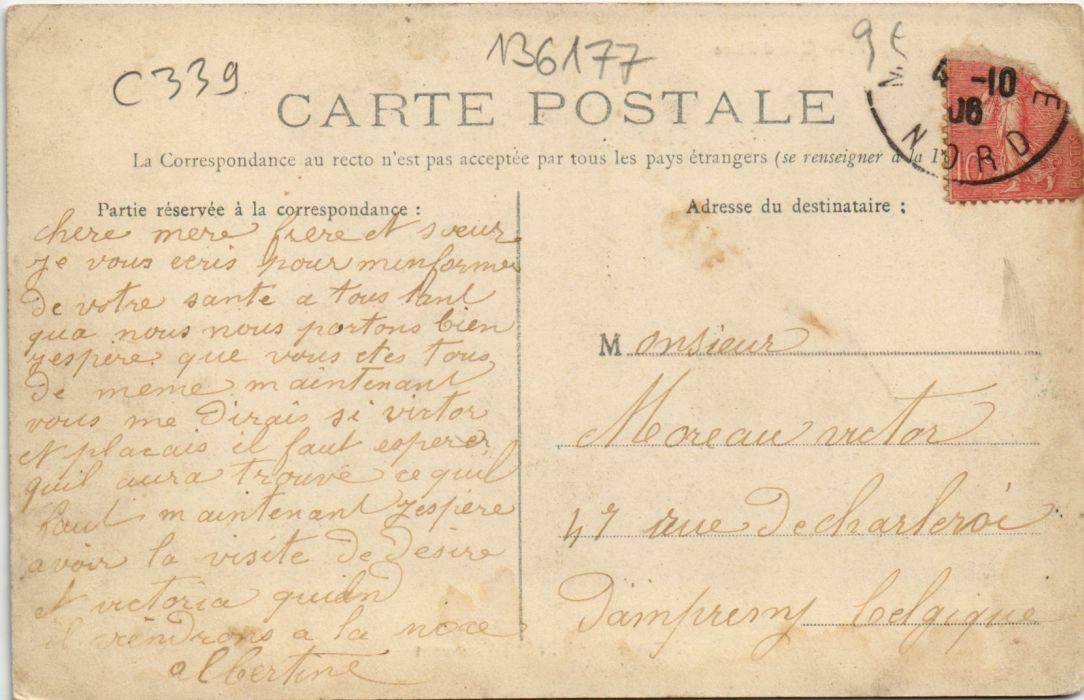 C339
136177
CARTE POSTALE
4 -10
06
NORD
10
La Correspondance au recto n'est pas acceptée par tous les pays étrangers (se renseigner à la
Partie réservée à la correspondance :
chere mere frere et sœur
je vous ecris pour minformer
de votre sante a tous tant
qua nous nous portons bien
jespere que vous etes tous
de meme maintenant
vous me dirais si victor
et placais il faut esperer
quil aura trouvé ce quil
faut maintenant jespere
avoir la visite de Désire
et victoria quand
il viendrons a la noce
albertine
Adresse du destinataire :
Monsieur
Moreau victor
47 rue de charleroi
Dampremy belgique